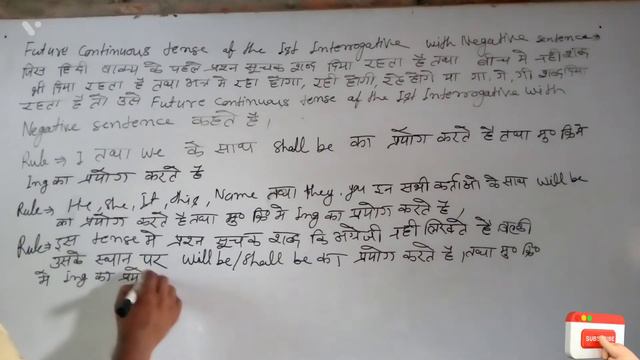 Future Continuous tense of the Ist Interrogative with Negative sentence→
जिस हिन्दी वाक्य के पहले प्रश्न सूचक शब्द दिया रहता है तथा बीच में नहीं शब्द
भी दिया रहता है तथा अन्त में रहा होगा, रही होगी, रहे होंगे या गा, गे, गी शब्द दिया
रहता है तो उसे Future Continuous tense of the Ist Interrogative with
Negative sentence कहते है।
Rule→ I तथा we के साथ shall be का प्रयोग करते है तथा मु० क्रि में
Ing का प्रयोग करते है
Rule→ He, she, It, this, Name तथा they, you इन सभी कर्ताओ के साथ will be
का प्रयोग करते है तथा मु० क्रि० में Ing का प्रयोग करते है,
Rule→ इस tense में प्रश्न सूचक शब्द कि अंग्रेजी नही लिखते है बल्की
उसके स्थान पर will be/shall be का प्रयोग करते है, तथा मु० क्रि०
में Ing का प्रयो
SUBSCRIBE